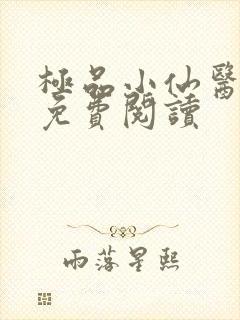 極品小仙醫
免費閱讀
雨落星熙